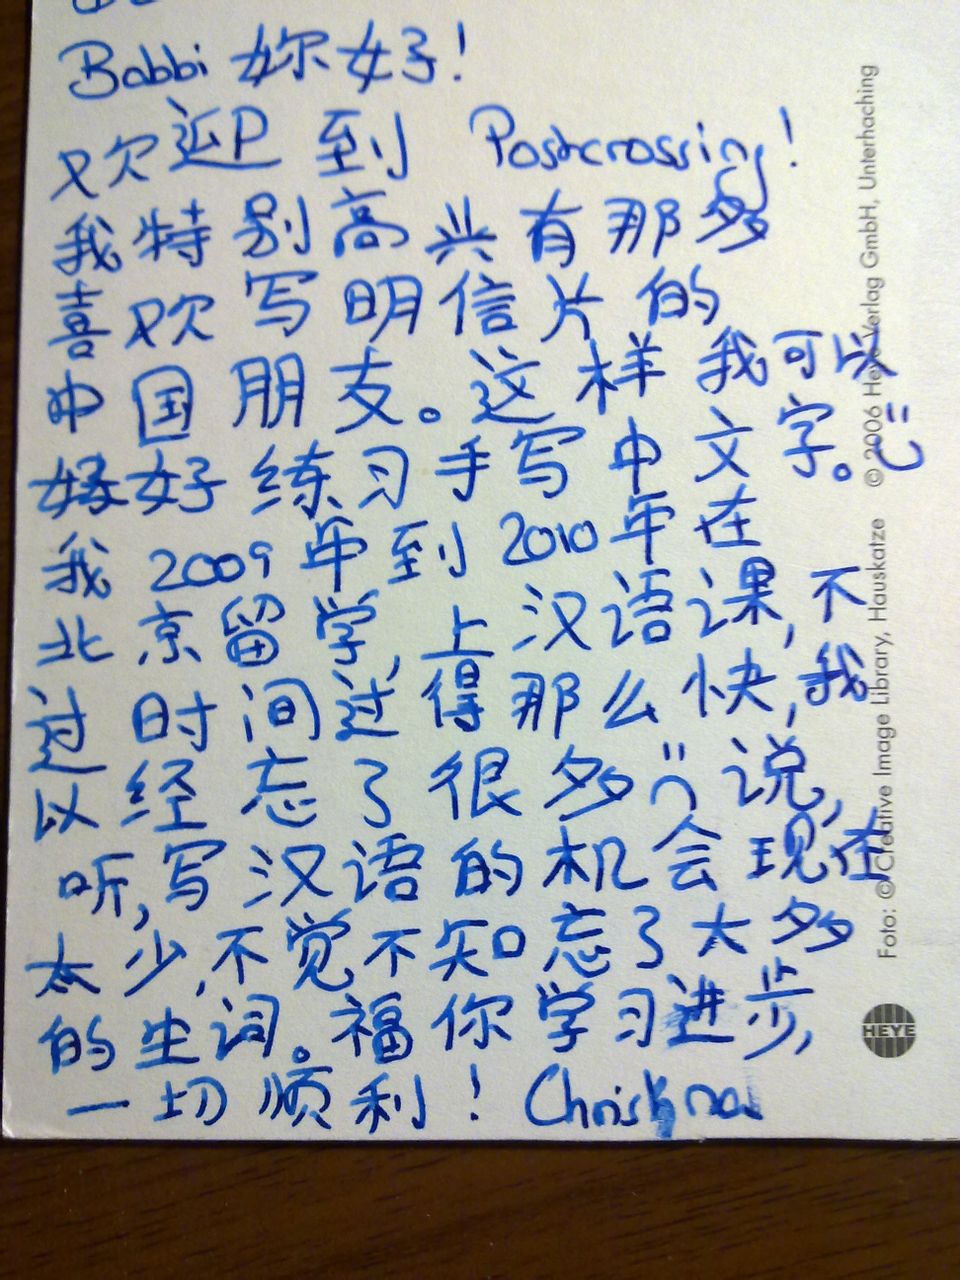 Babbi 妳好!
欢迎到 Postcrossing!
我特别高兴有那多
喜欢写明信片的
中国朋友。这样我可以
好好练习手写中文字。
我2009年到2010年在
北京留学,上汉语课,不
过时间过得那么快,我
以经忘了很多 说,
听,写汉语的机会现在
太少,不觉不知忘了太多
的生词。福你学习进步,
一切顺利! Christina
Foto: © Creative Image Library, Hauskatze © 2006 Heye Verlag GmbH, Unterhaching
HEYE